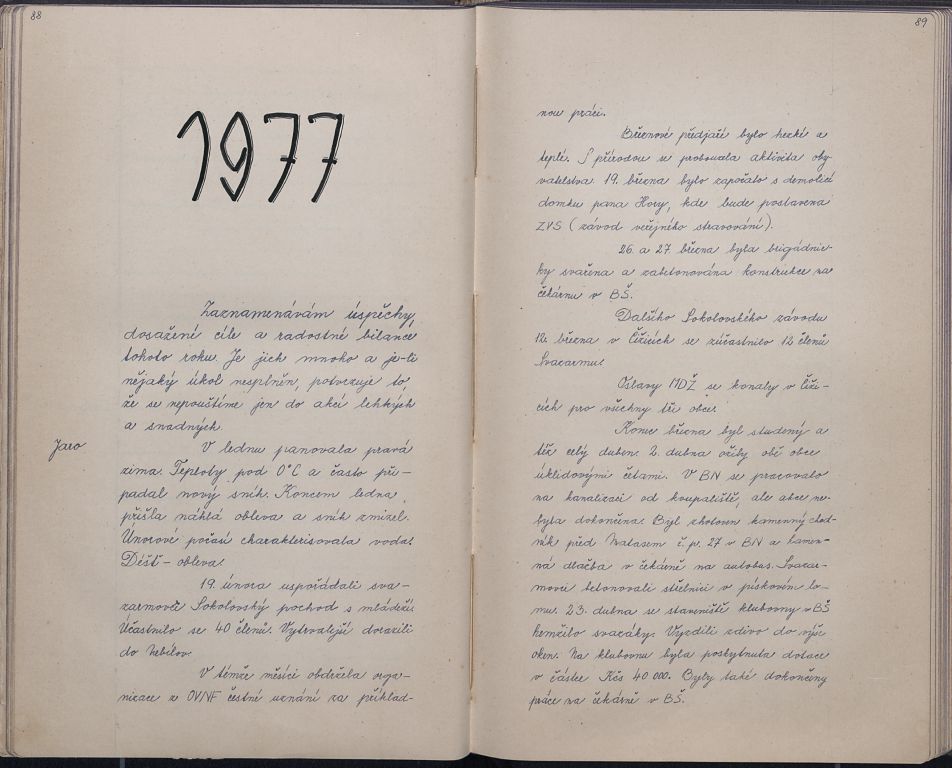 88
1977
Zaznamenávám úspěchy,
dosažení cíle a radostné bilance
tohoto roku. Je jich mnoho a je-li
nějaký úkol nesplněn, potvrzuje to,
že se nepouštíme jen do akcí lehkých
a snadných.
Jaro
V lednu panovala pravá
zima. Teploty pod 0°C a často při-
padal nový sníh. Koncem ledna
přišla náhlá obleva a sníh zmizel.
Únorové počasí charakterisovala voda.
Déšť - obleva.
19. února uspořádali sva-
zarmovci Sokolovský pochod s mládeží.
Účastnilo se 40 členů. Vytrvalejší dorazili
do Nebílov.
V témže měsíci obdržela orga-
nizace z OV NF čestné uznání za příklad-
89
nou práci.
Březnové předjaří bylo hezké a
teplé. S přírodou se probouzela aktivita oby-
vatelstva. 19. března bylo započato s demolicí
domku pana Hory, kde bude postavena
ZVS (závod veřejného stravování).
26. a 27. března byla brigádnic-
ky svařena a zabetonována konstrukce na
čekárnu v BŠ.
Dalšího Sokolovského závodu
12. března v Čižicích se zúčastnilo 12 členů
Svazarmu.
Oslavy MDŽ se konaly v Čiži-
cích pro všechny tři obce.
Konec března byl studený a
též celý duben. 2. dubna ožily obě obce
úklidovými četami. V BN se pracovalo
na kanalizaci od koupaliště, ale akce ne-
byla dokončena. Byl zhotoven kamenný chod-
ník před Matasem č.p. 27 v BN a kamen-
ná dlažba v čekárně na autobus. Svazar-
movci betonovali střelnici v pískovém lo-
mu. 23. dubna se staveniště klubovny v BŠ
hemžilo svazáky. Vyzdili zdivo do výše
oken. Na klubovnu byla poskytnuta dotace
v částce Kčs 40 000. Byly také dokončeny
práce na čekárně v BŠ.